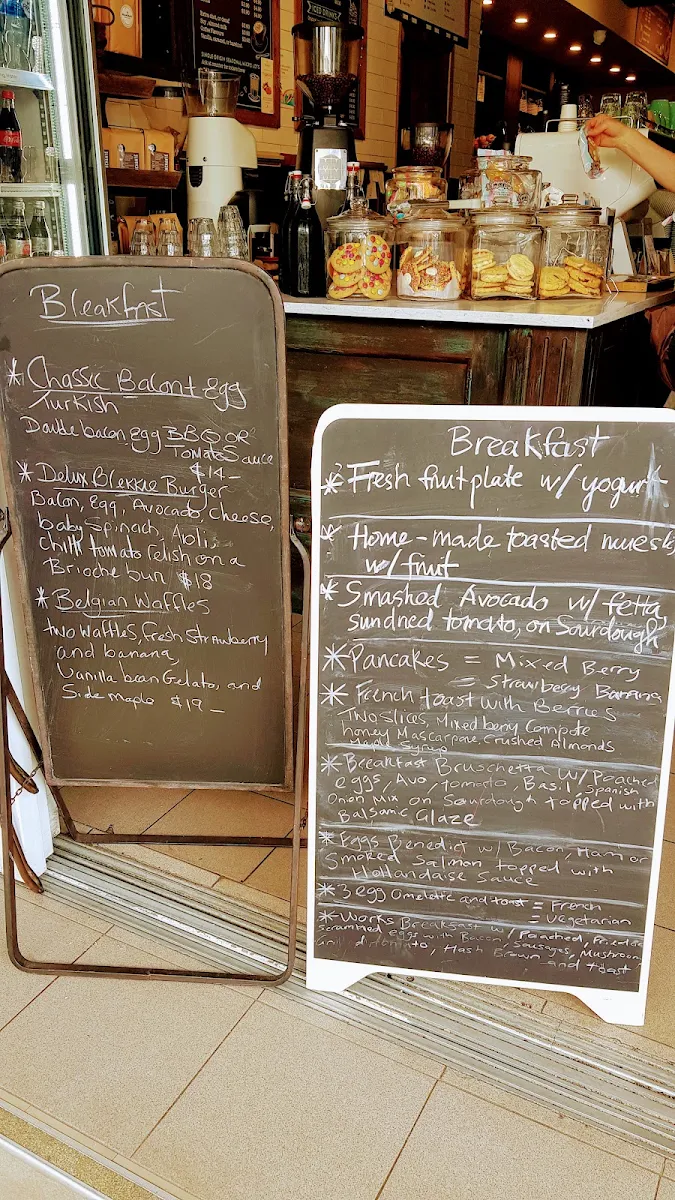 Bleakfast
* Chassic Bacon + egg
Turkish
Double bacon, egg BBQ OR
Tomato Sauce
$14-
* Delux Blekkie Burger
Bacon, Egg, Avocado, cheese,
baby Spinach, Aioli,
chilli tomato relish on a
Brioche bun $18
* Belgian Waffles
two Waffles, Fresh Strawberry
and banana,
Vanilla bean Gelato, and
Side maple $19-
Breakfast
* Fresh fruit plate w/ yogurt
* Home-made toasted muesli
w/ fruit
* Smashed Avocado w/ fetta,
sundried tomato, on Sourdough
* Pancakes = Mixed Berry
= Strawberry Banana
* French toast with Berries
Two Slices, Mixed berry Compote
honey Mascarpone, Crushed Almonds
Maple Syrup
* Breakfast Bruschetta w/ Poached
eggs, Avo, Tomato, Basil, Spanish
Onion Mix on Sourdough topped with
Balsamic Glaze
* Eggs Benedict w/ Bacon, Ham or
Smoked Salmon topped with
Hollandaise Sauce
* 3 egg Omelette and toast = French
= Vegetarian
* Works Breakfast w/ Poached, Fried or
Scrambled eggs with Bacon, Sausages, Mushroom
Grilled tomato, Hash Brown and toast